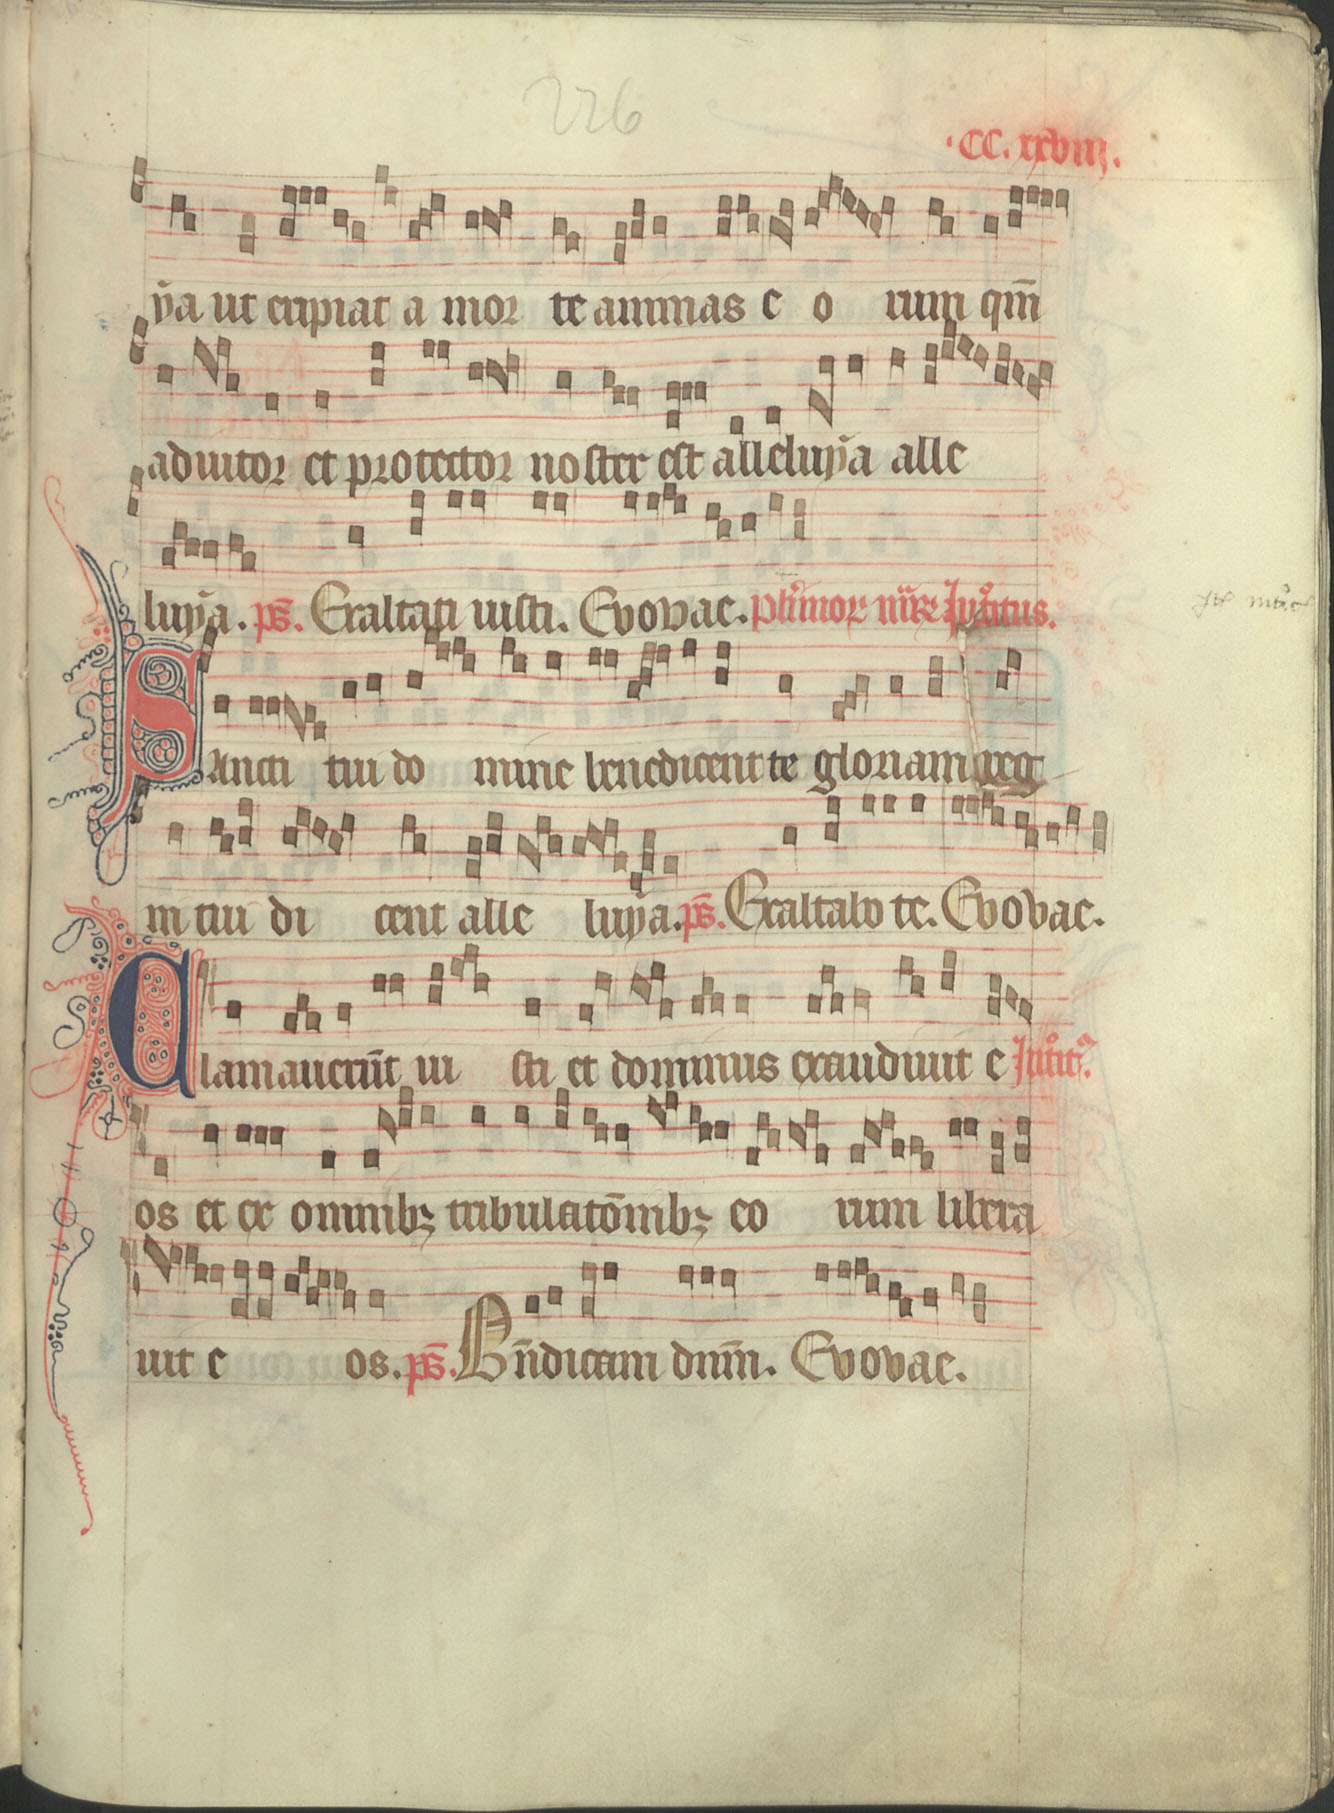 226
.CC. xxviij.
ÿa ut eripiat a mor te animas e o rum qm̅
adiutor et protector noster est alleluÿa alle
luÿa. ps̅. Exaltati iusti. Evovae.
Sancti tui do mine benedicent te gloriam reg
ni tui di cent alle luÿa. ps̅. Exaltabo te. Evovae.
Clamaueru̅t iu sti et dominus exaudiuit e
os et ex omnibꝫ tribulato̅nibꝫ eo rum libera
uit e os. ps̅. Bn̅dicam dnm̅. Evovae.